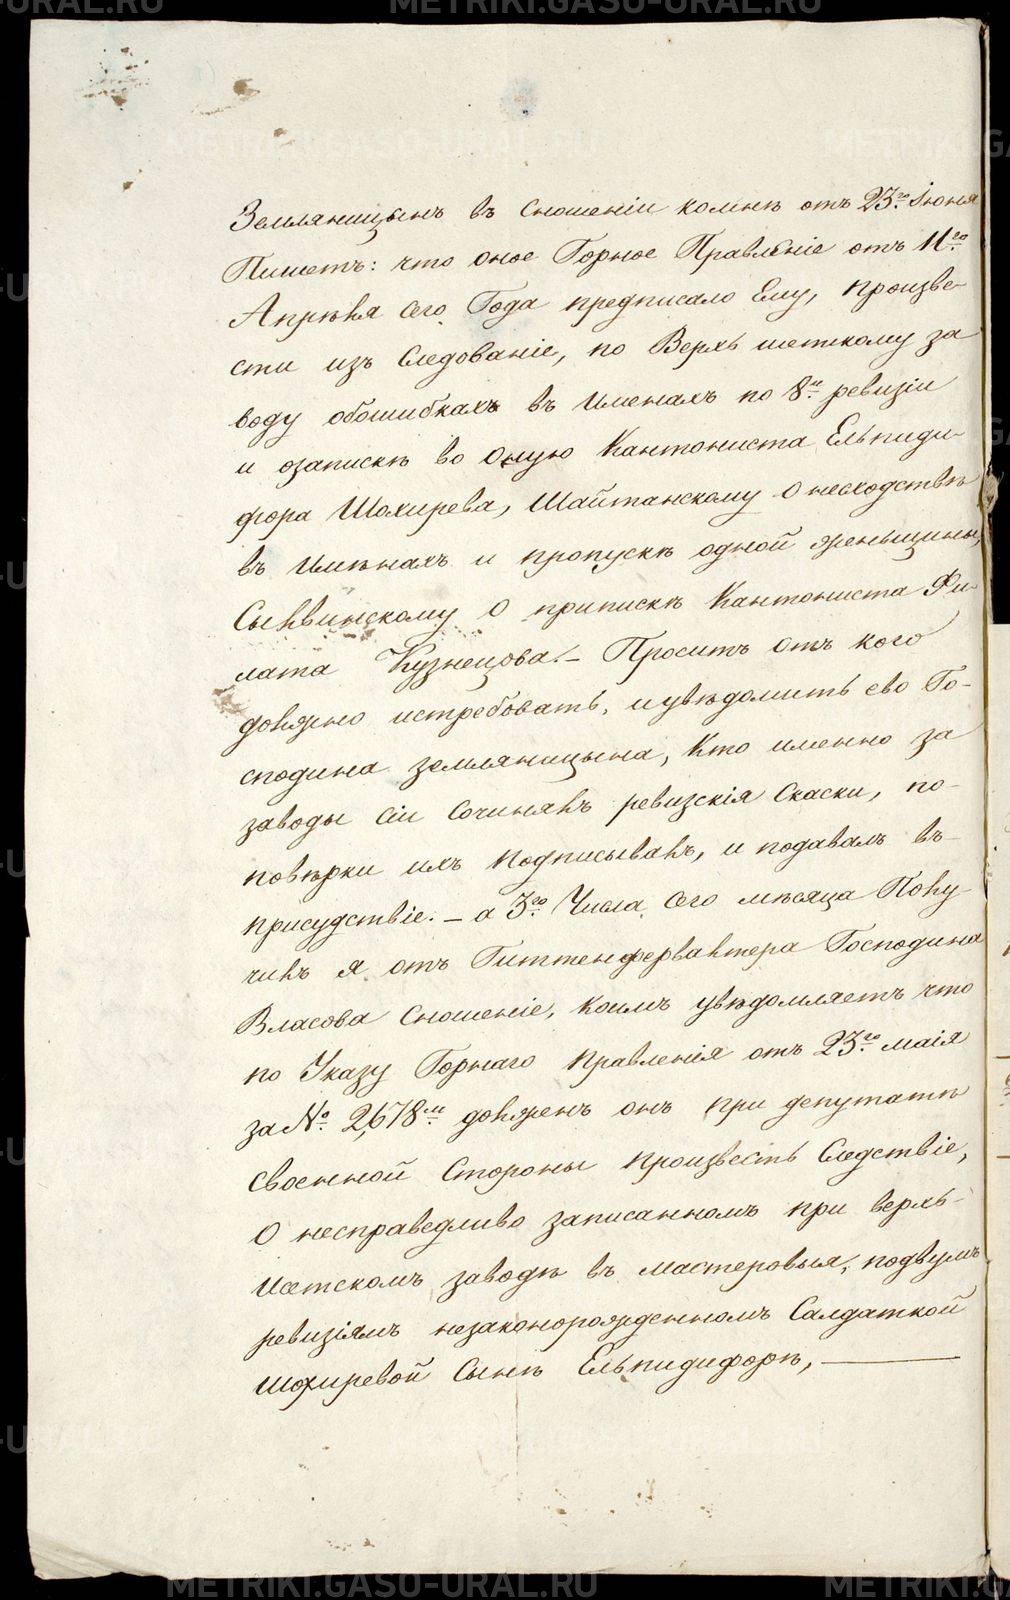 Земляницынъ въ сношеніи комнѣ отъ 23го Іюня
Пишетъ: что оное Горное Правленіе отъ 11го
Апрѣля сего Года предписало Ему, произве-
сти изъ следованіе, по Верхъ исетскому за
воду обошибкахъ въ именахъ по 8й ревизіи
и озапискѣ во оную Кантониста Ельпиди-
фора Шохирева, Шайтанскому о несходствѣ
въ имѣнахъ и пропускѣ одной женьщины,
Сылвинскому о припискѣ Кантониста Фи-
лата Кузнецова. – Проситъ отъ кого
должно истребовать, и увѣдомить ево Го-
сподина Земляницына, Кто именно за
заводы сіи сочинялъ ревизскія скаски, по-
повѣрки ихъ подписывалъ, и подавалъ въ-
присудствіе. – а 3го Числа сего мѣсяца Полу-
чилъ я отъ Гиттенфервалтера Господина
Власова сношеніе, коимъ увѣдомляетъ что
по Указу Горнаго Правленія отъ 23го маія
за №. 2,678м долженъ онъ при депутатѣ
своенной Стороны произвесть Следствіе,
О несправедливо записанномъ при верхъ-
Исетскомъ заводѣ въ мастеровыя, подвумъ
ревизіямъ незаконорожденномъ Салдаткой
шохиревой Сынѣ Ельпидифорѣ,
METRIKI.GASO-URAL.RU